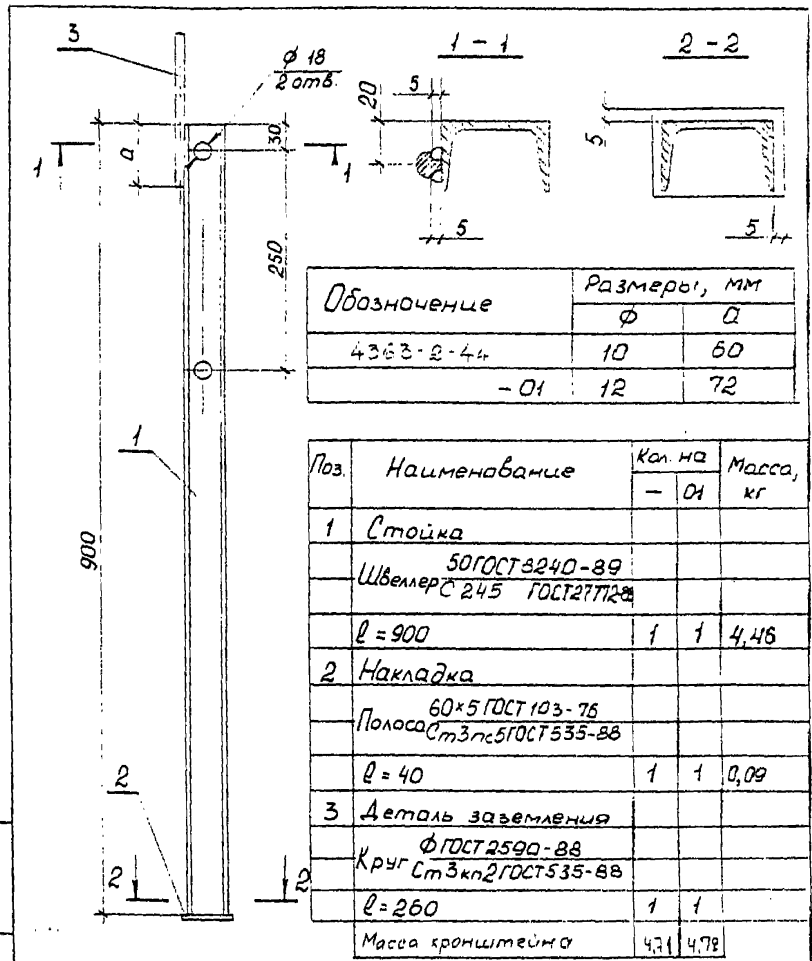 3
1 - 1
2 - 2
φ 18
2 отв.
5
20
5
30
а
1
1
5
5
250
Обозначение
Размеры, мм
φ
а
4363-2-44
10
60
-01
12
72
1
900
Поз.
Наименование
Кол. на
Масса, кг
–
01
1
Стойка
Швеллер 50 ГОСТ 8240-89
С 245 ГОСТ 27772-88
ℓ = 900
1
1
4,46
2
Накладка
Полоса 60×5 ГОСТ 103-76
Ст3пс5 ГОСТ 535-88
ℓ = 40
1
1
0,09
3
Деталь заземления
Круг φ ГОСТ 2590-88
Ст3кп2 ГОСТ 535-88
ℓ = 260
1
1
Масса кронштейна
4,71
4,78
2
2
2